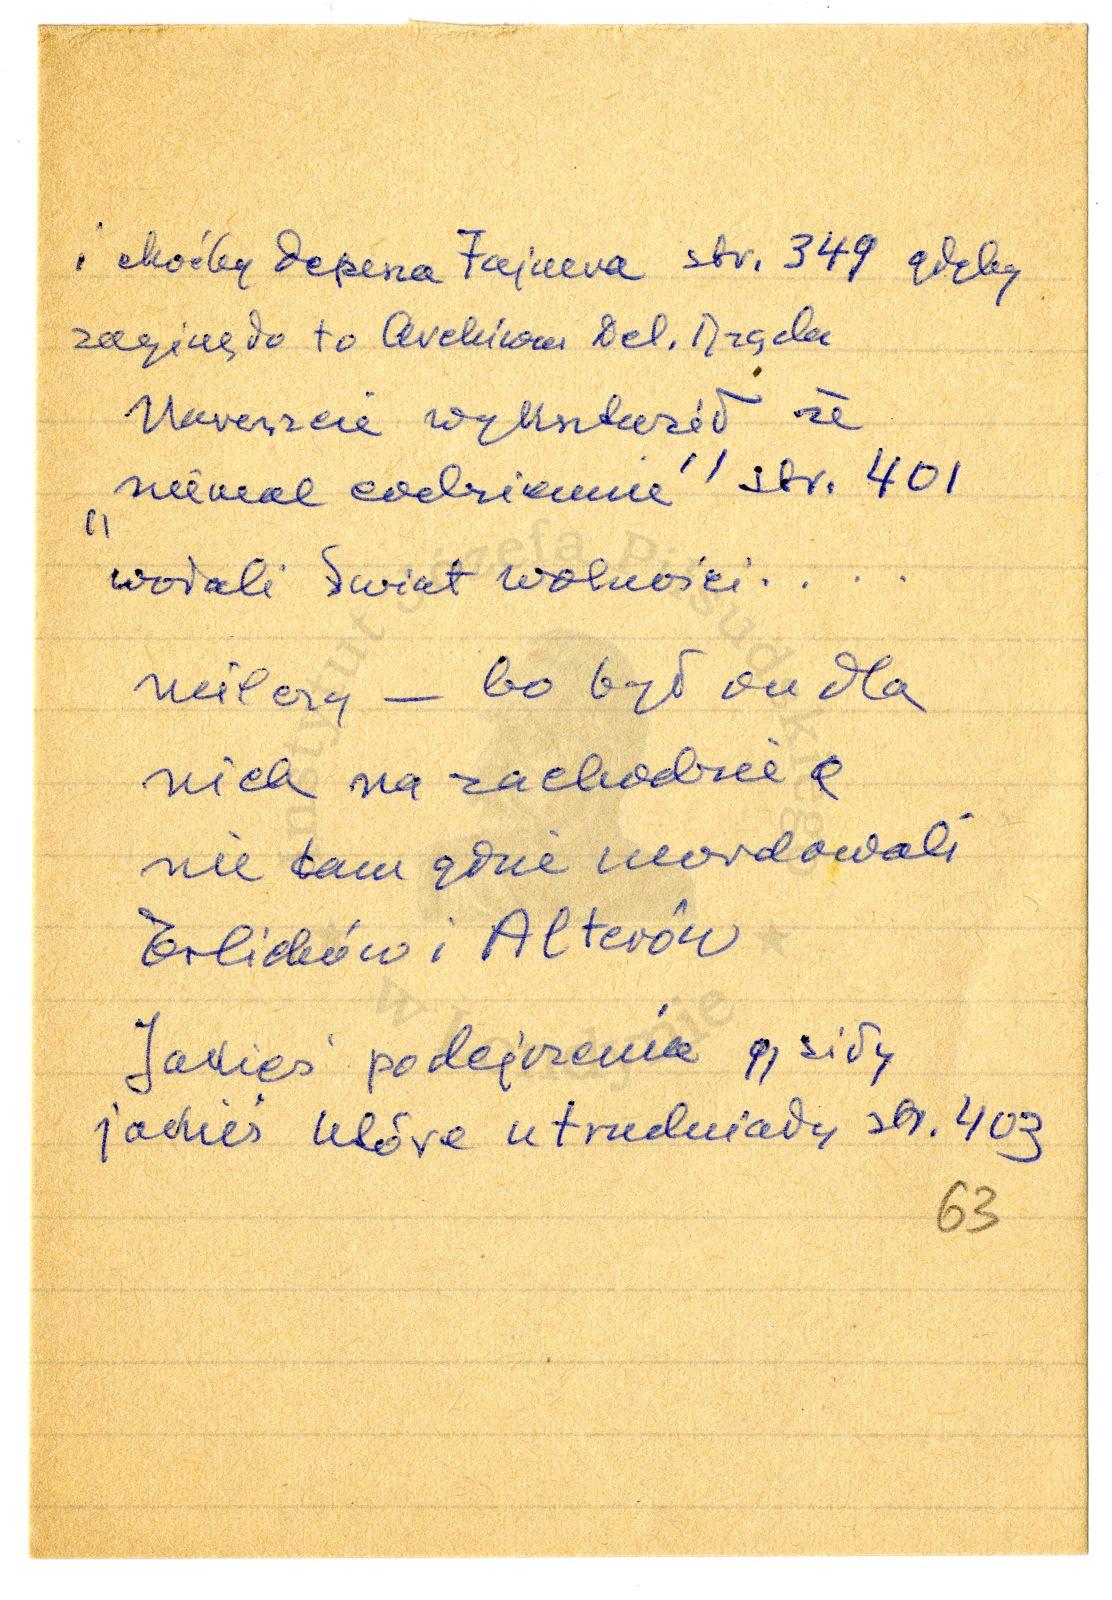 i choćby depesza Fajnera str. 349 gdyby
zaginęło to Archiwum Del. Rządu
Nareszcie wykrztusił że
"niemal codziennie" str. 401
wołali świat wolności. . . .
milczy — bo był on dla
nich na zachodzie a
nie tam gdzie mordowali
Erlichów i Alterów
Jakieś podejrzenia, siły
jakieś które utrudniały str. 403
63
Instytut Józefa Piłsudskiego
w Londynie